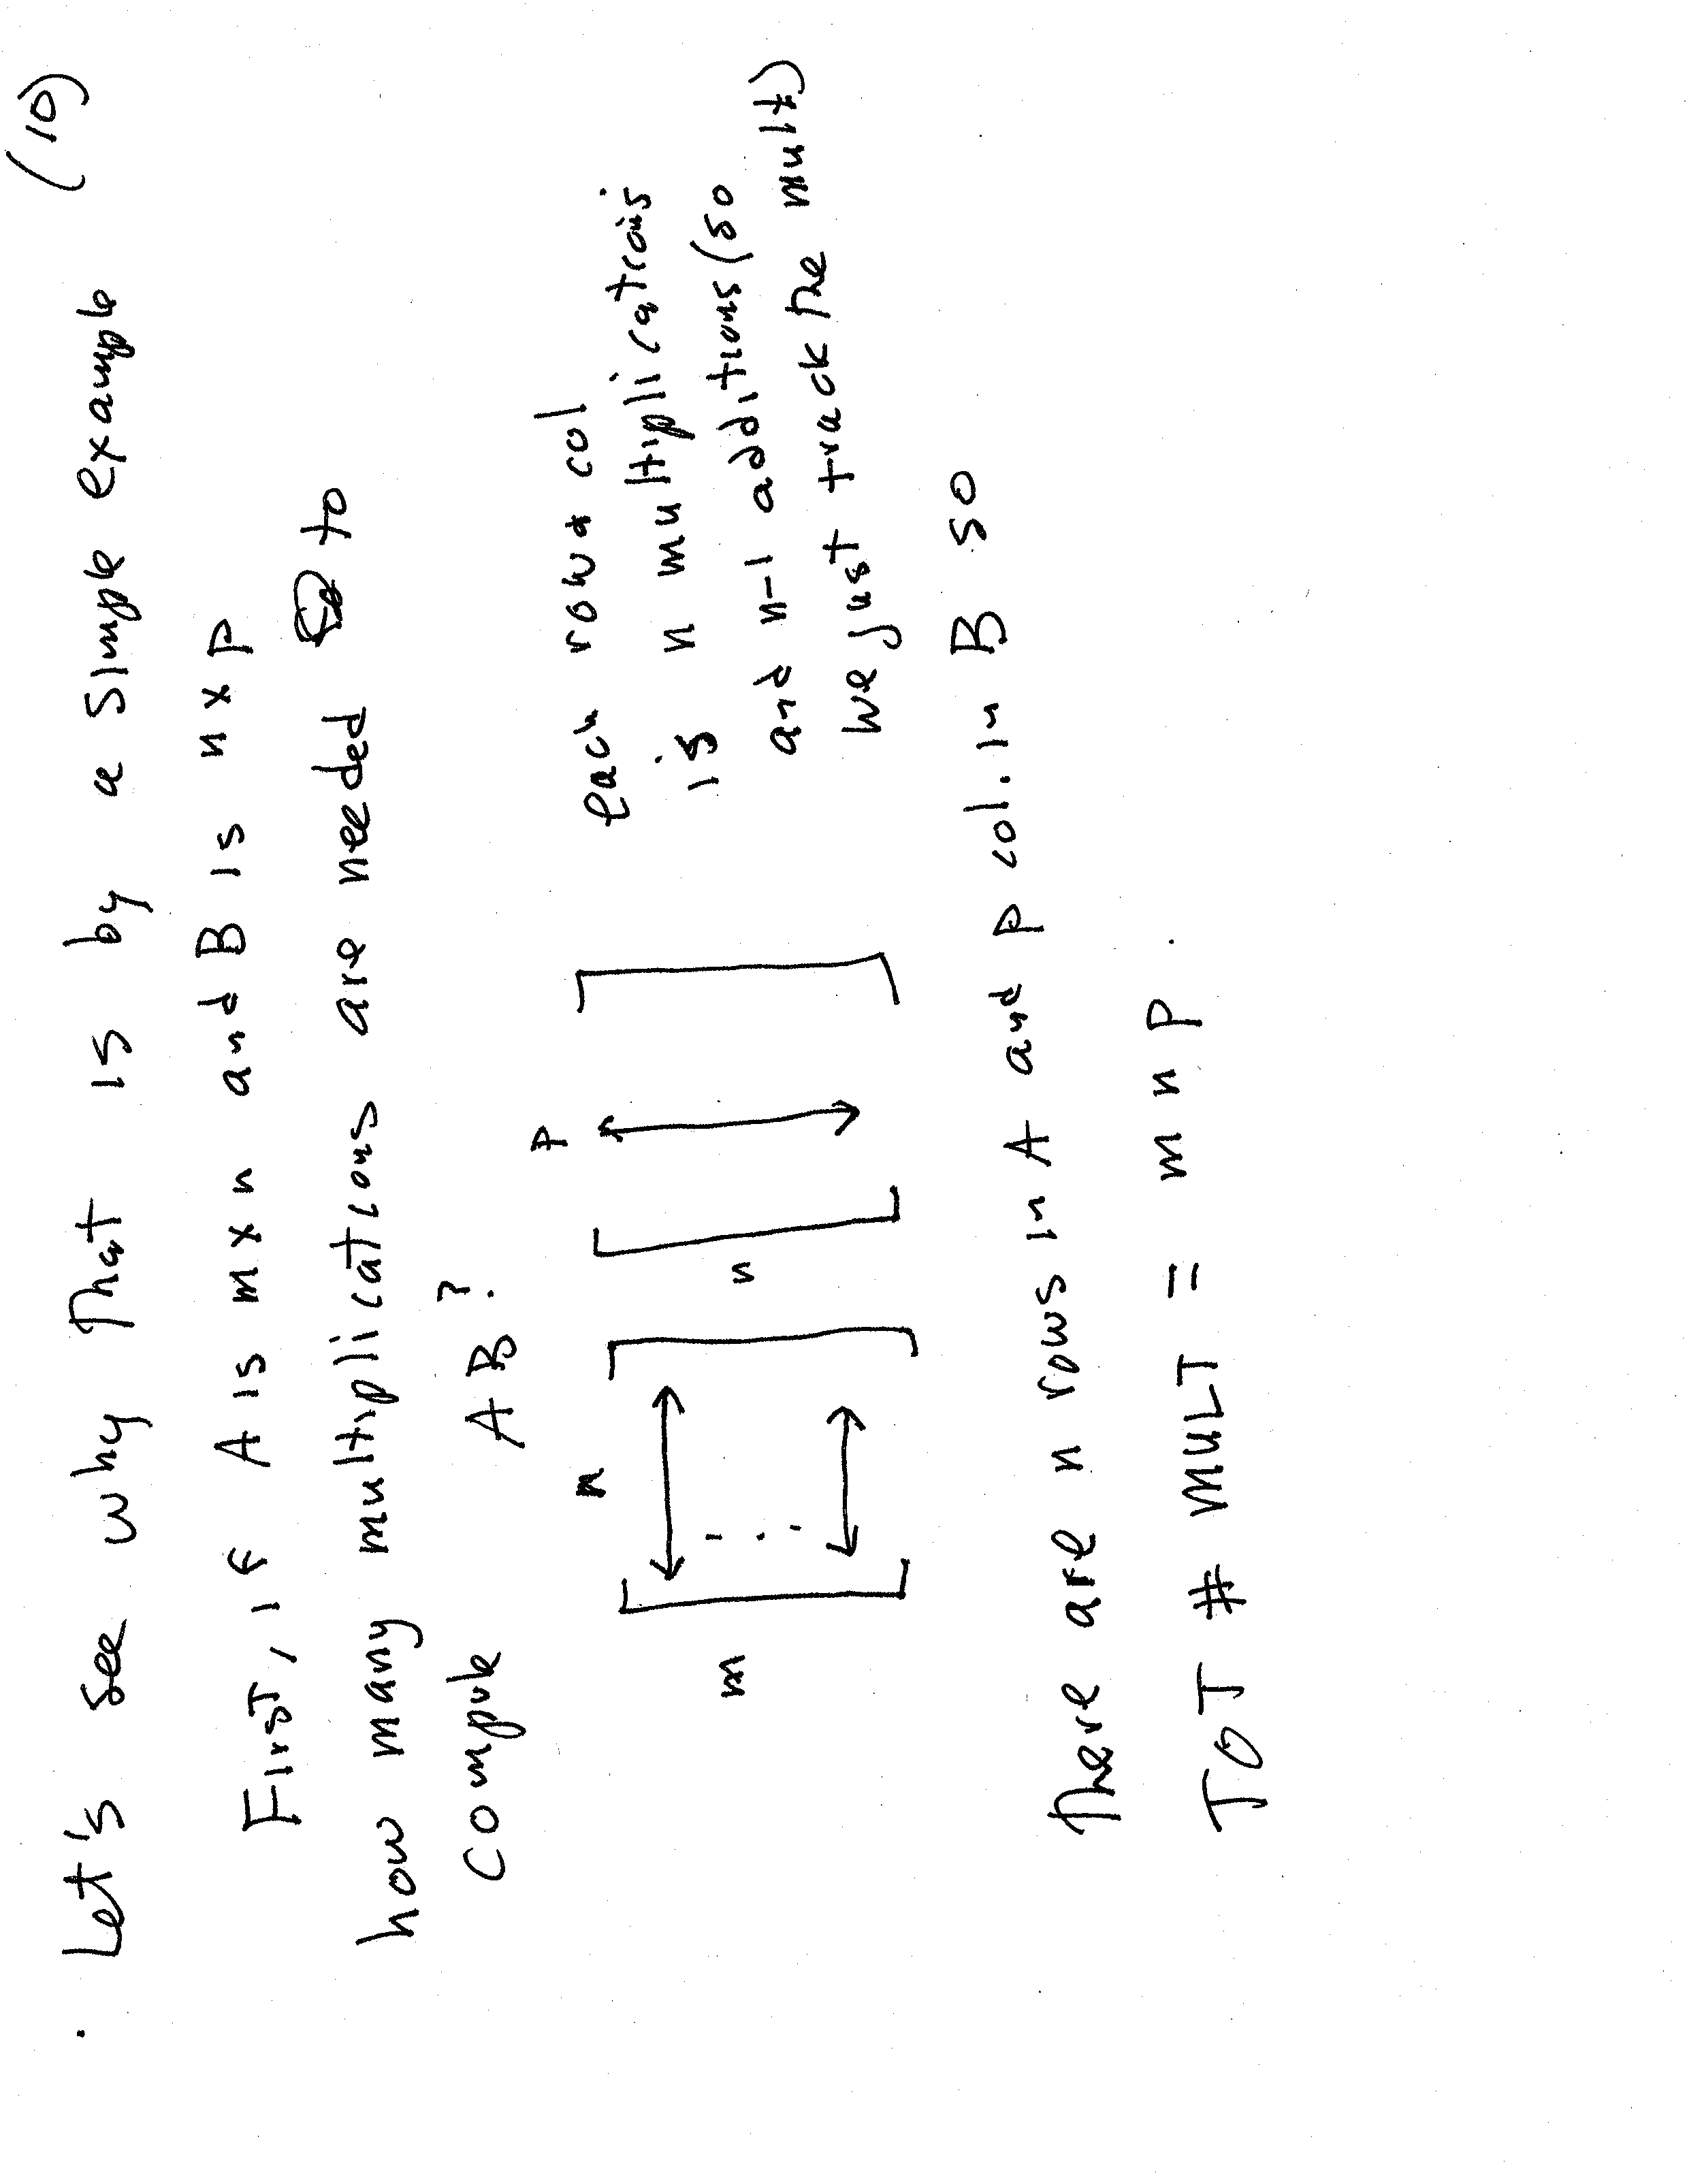 (10)
. Let's see why that is by a simple example
First, if A is m x n and B is n x p
how many multiplications are needed to
compute AB?
each row * col
is n multiplications
and n-1 additions (so
we just track the mult)
n
p
m
n
There are n rows in A and p col. in B so
TOT # MULT = m n p .